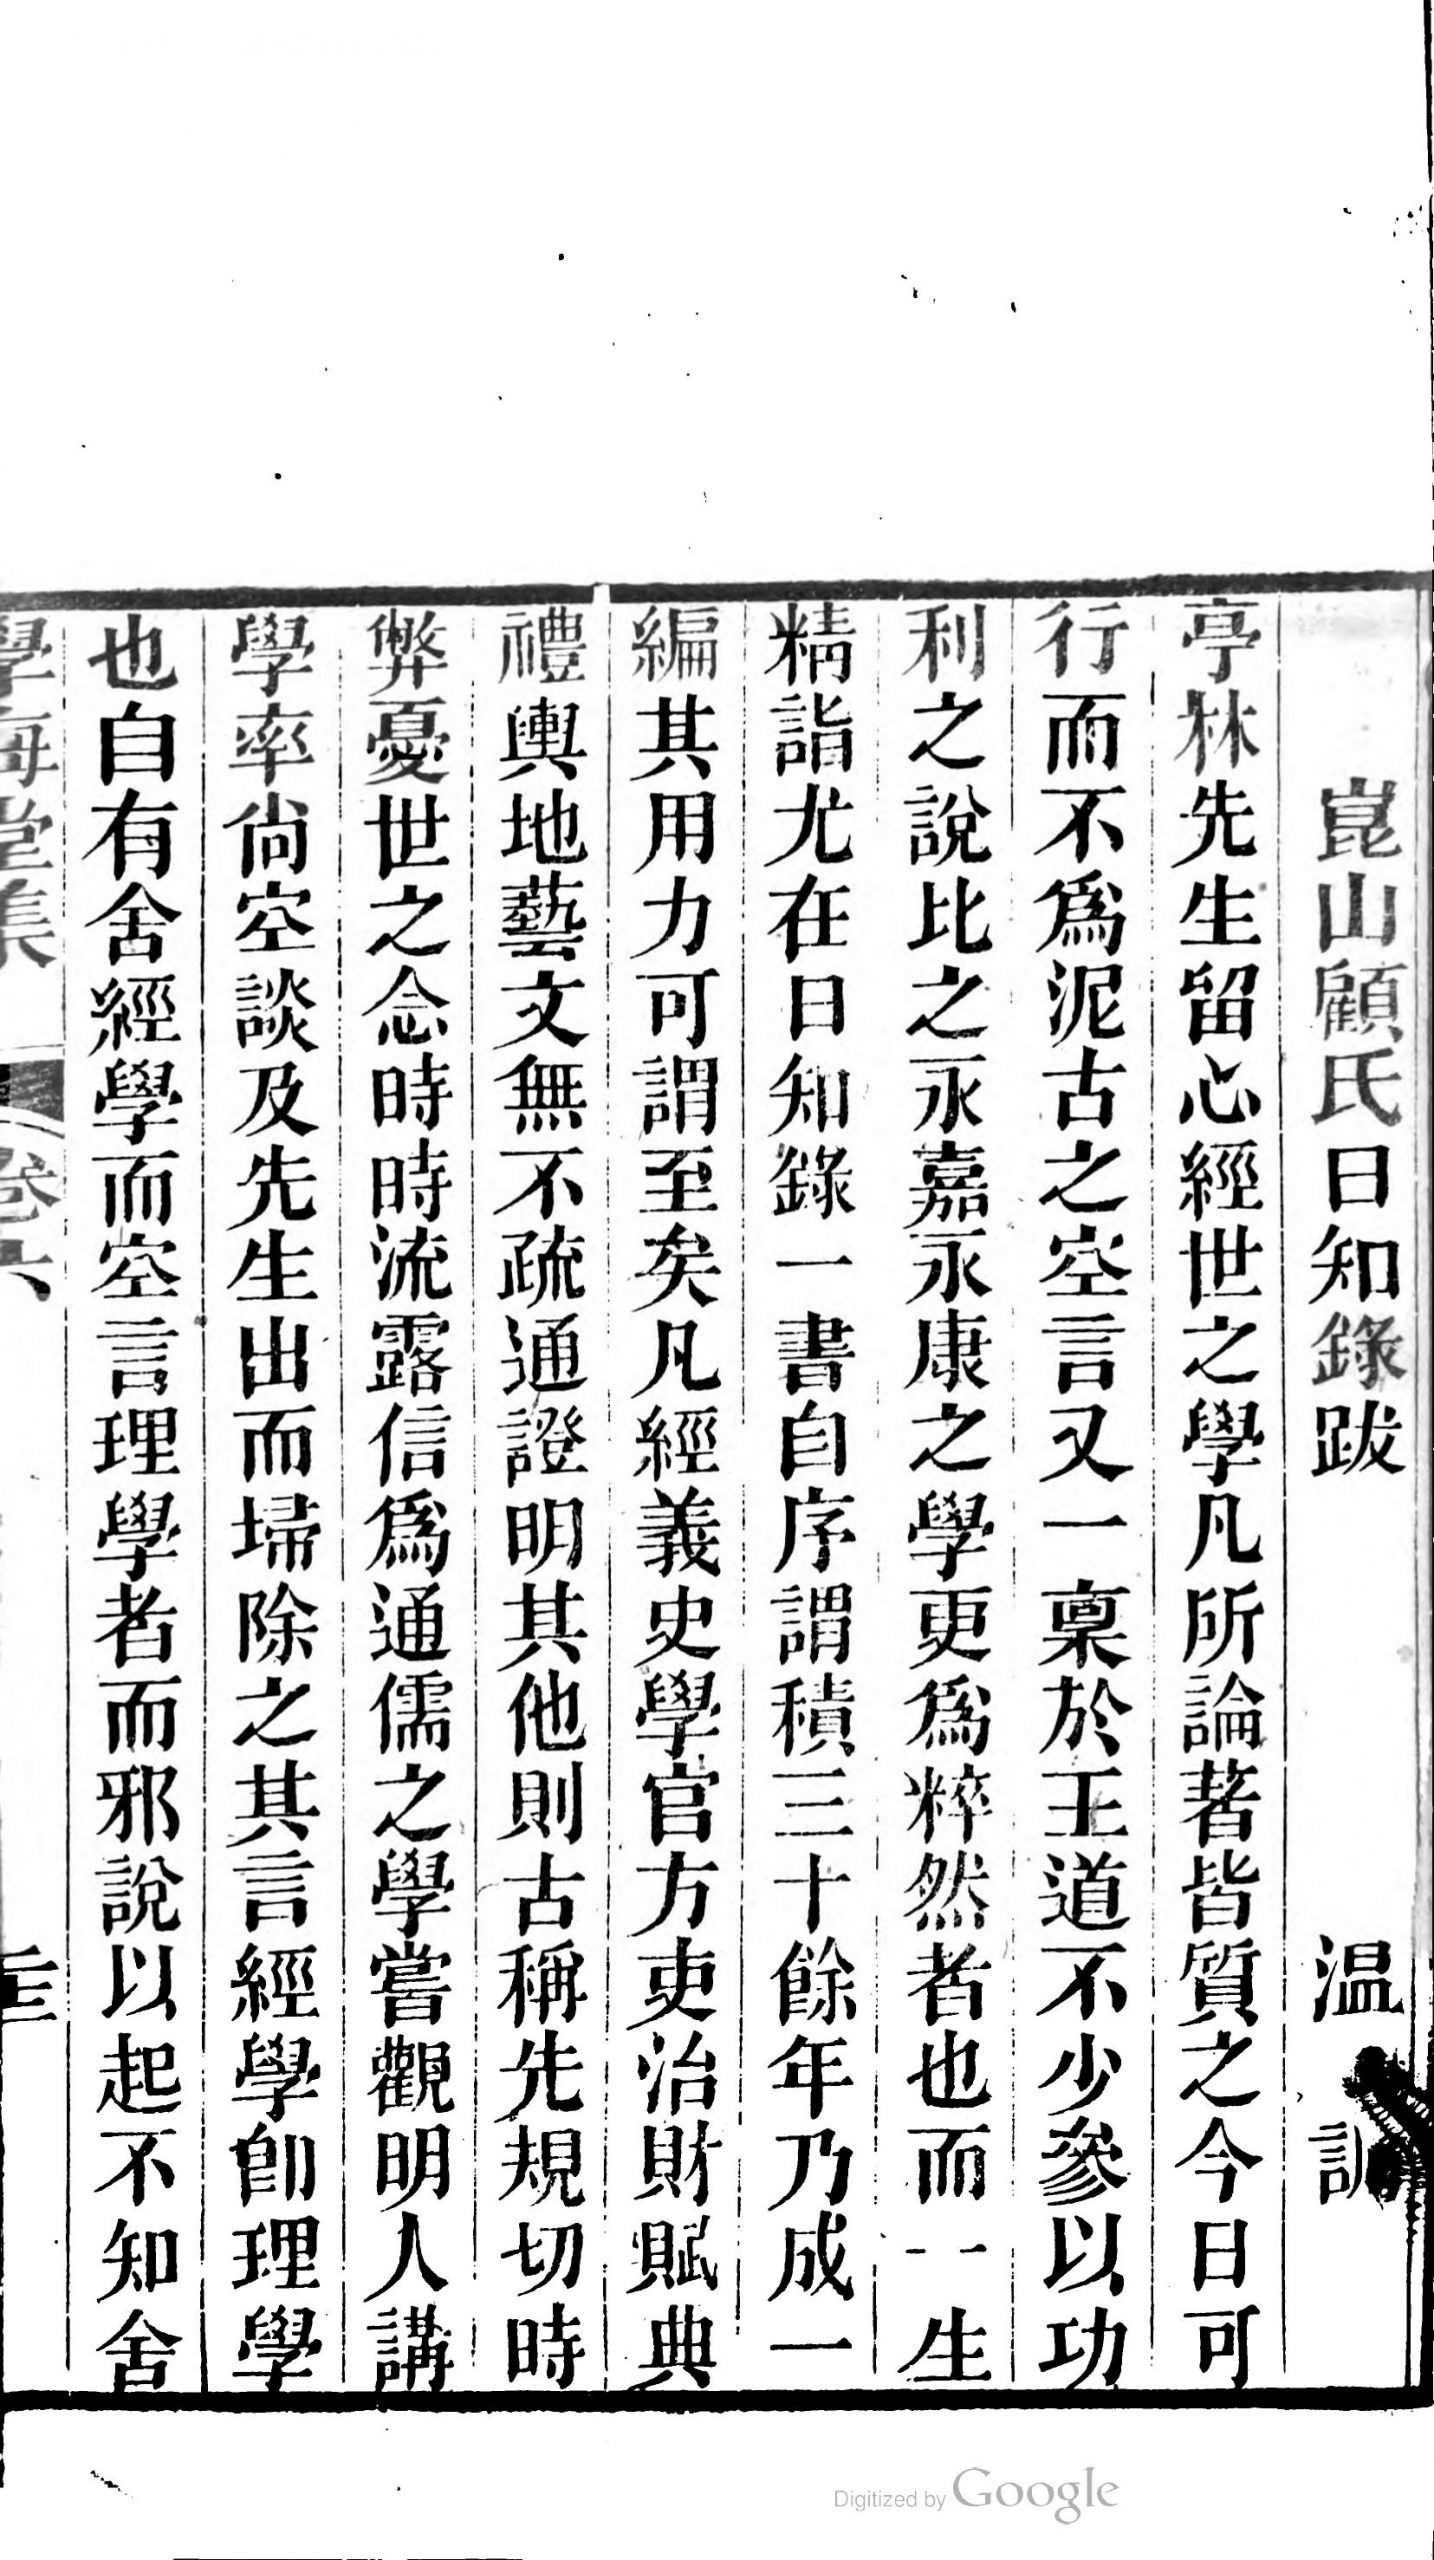 崑山顧氏日知錄跋 温訓
亭林先生留心經世之學凡所論著皆質之今日可
行而不爲泥古之空言又一稟於王道不少參以功
利之說比之永嘉永康之學更爲粹然者也而一生
精詣尤在日知錄一書自序謂積三十餘年乃成一
編其用力可謂至矣凡經義史學官方吏治財賦典
禮輿地藝文無不疏通證明其他則古稱先規切時
弊憂世之念時時流露信爲通儒之學嘗觀明人講
學率尚空談及先生出而埽除之其言經學卽理學
也自有舍經學而空言理學者而邪說以起不知舍
學海堂集 卷六
Digitized by Google